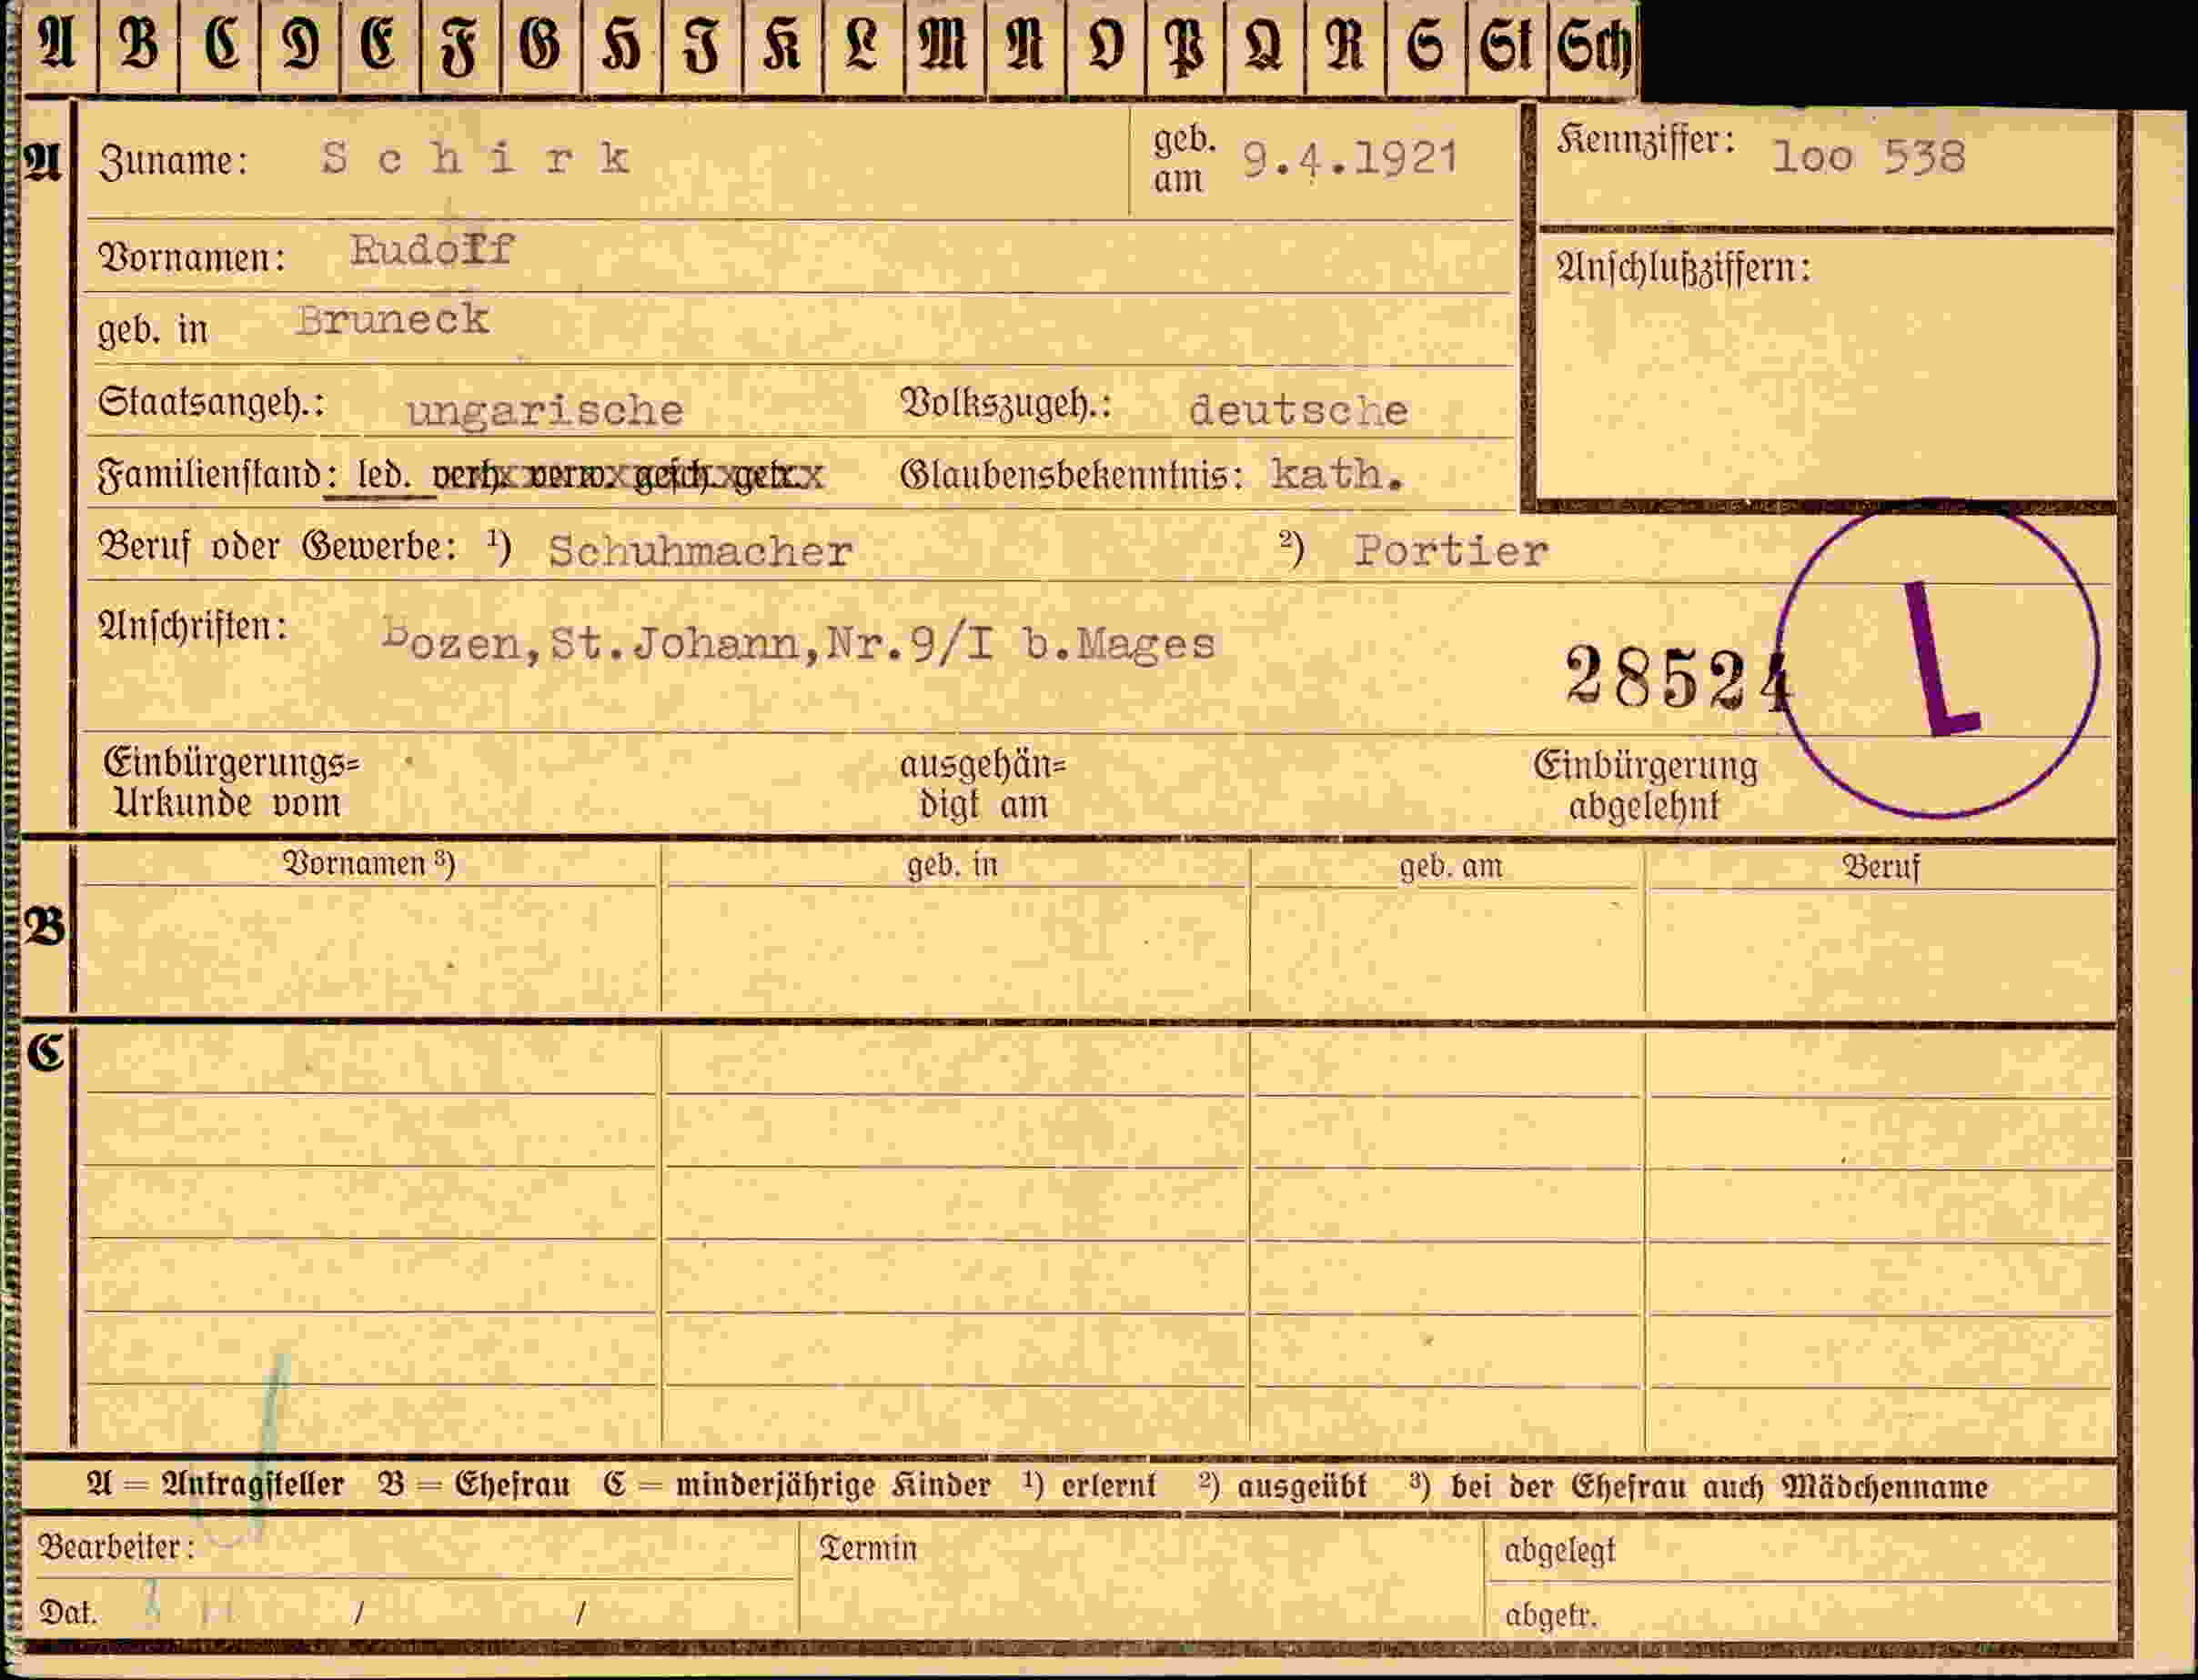 A B C D E F G H I K L M N O P Q R S St Sch
A Zuname: Schirk geb. am 9.4.1921 Kennziffer: loo 538
Vornamen: Rudolf Anschlußziffern:
geb. in Bruneck
Staatsangeh.: ungarische Volkszugeh.: deutsche
Familienstand: led. verh. verw. gesch. getr. Glaubensbekenntnis: kath.
Beruf oder Gewerbe: ¹) Schuhmacher ²) Portier
Anschriften: Bozen,St.Johann,Nr.9/I b.Mages
28524 L
Einbürgerungs= ausgehän= Einbürgerung
Urkunde vom digt am abgelehnt
Vornamen ³) geb. in geb. am Beruf
B
C
A = Antragsteller B = Ehefrau C = minderjährige Kinder ¹) erlernt ²) ausgeübt ³) bei der Ehefrau auch Mädchenname
Bearbeiter: Termin abgelegt
Dat. / / abgetr.